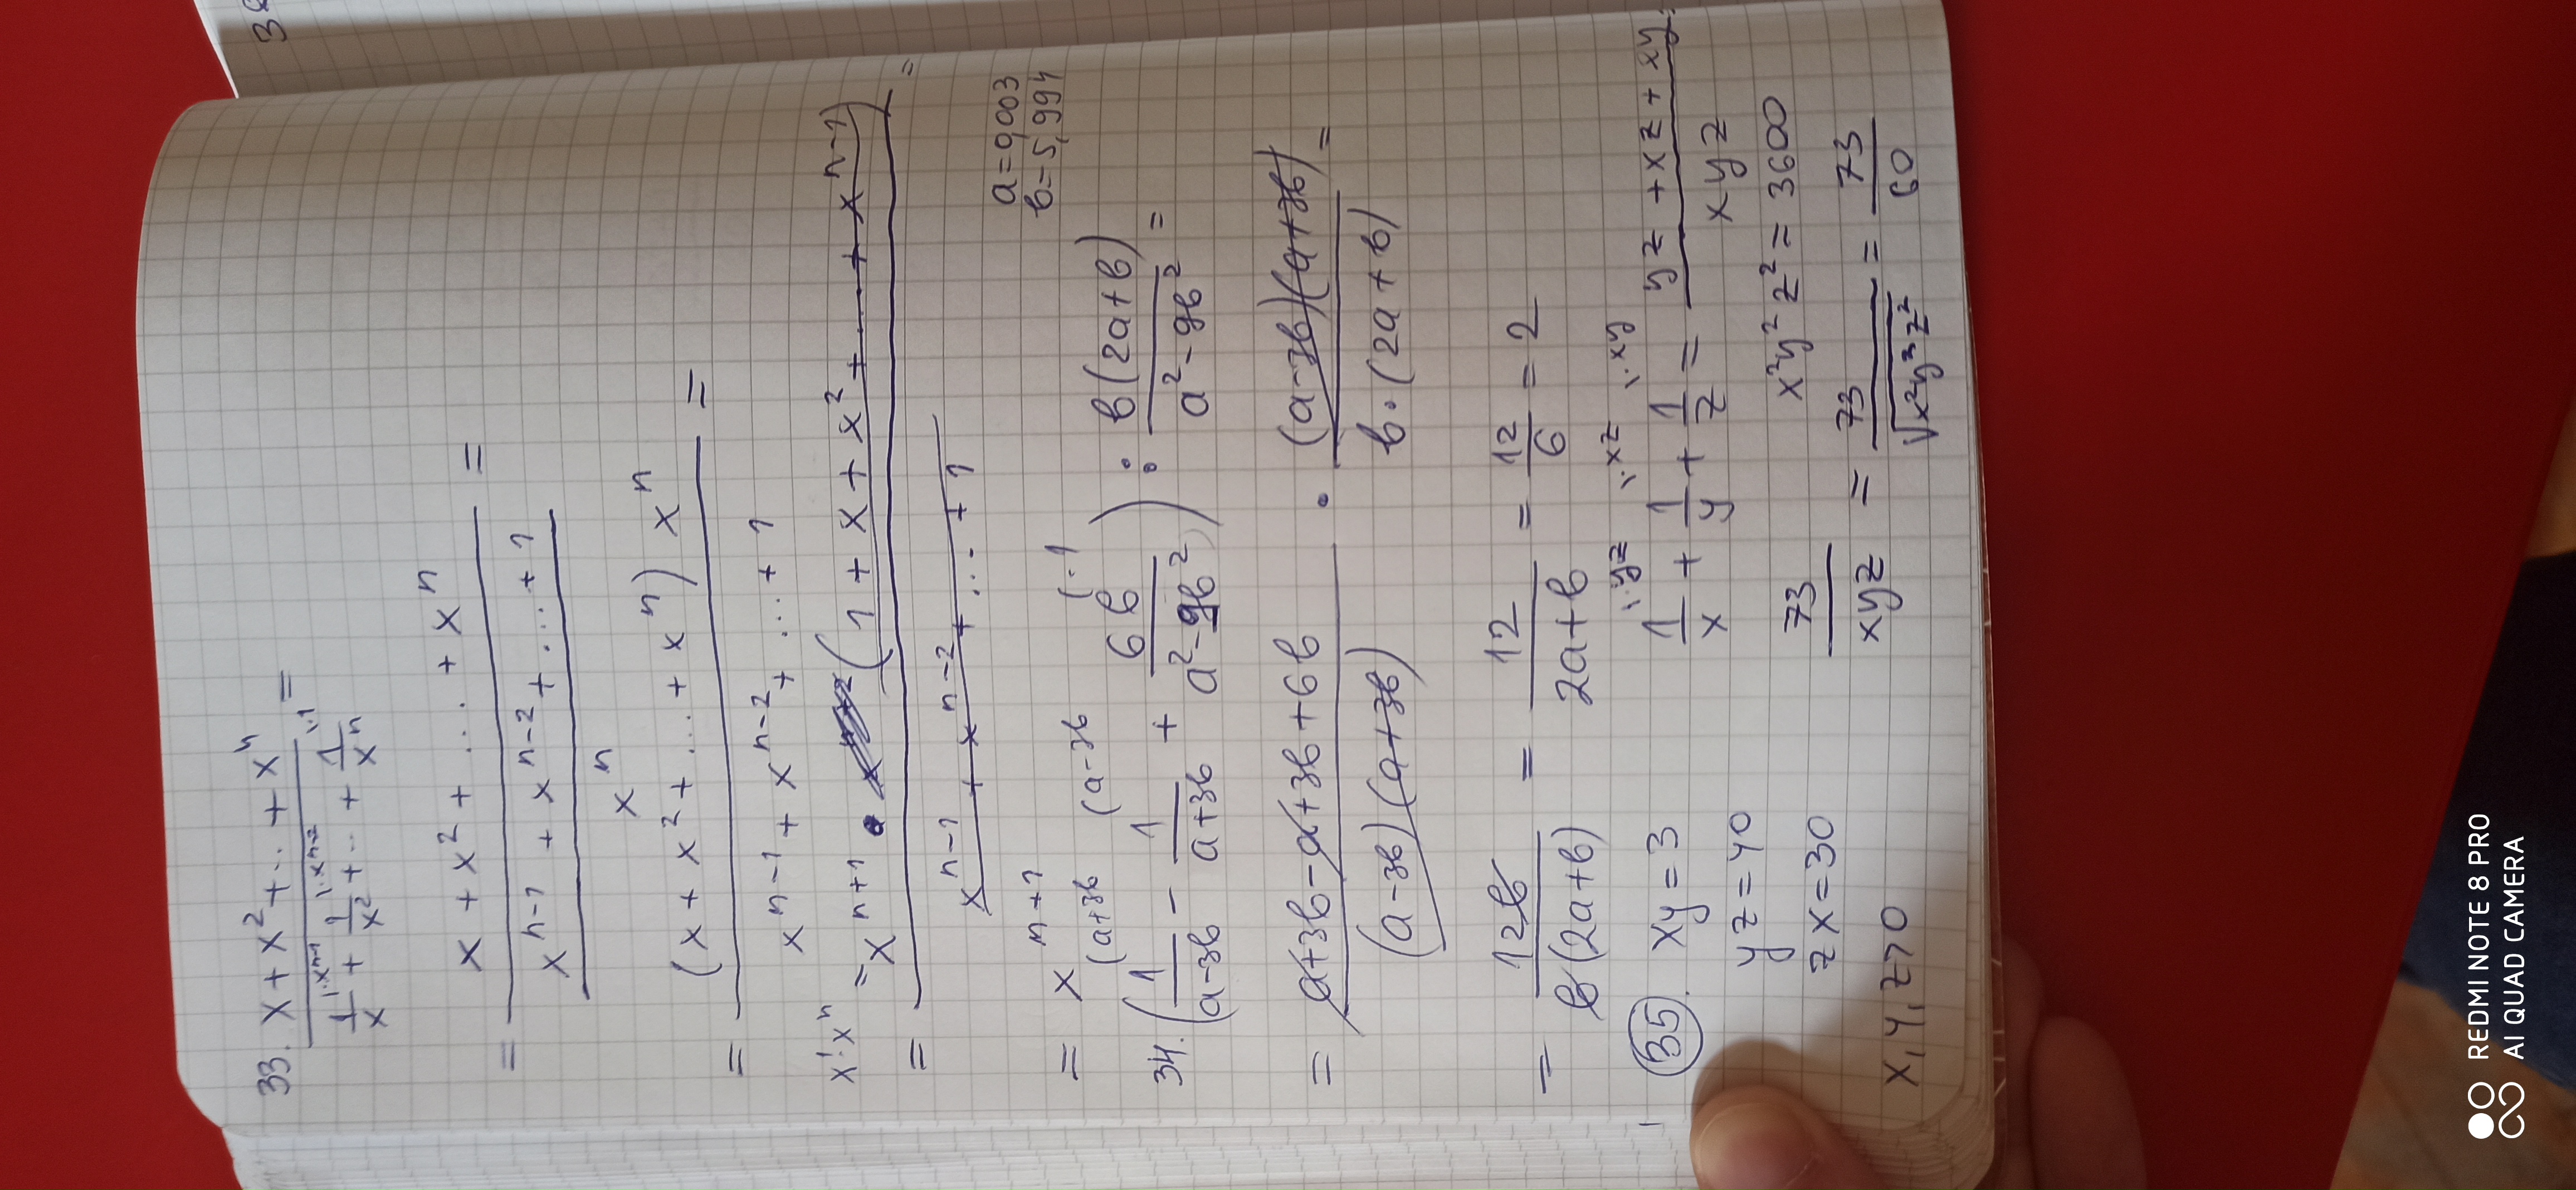 33. (x + x² + ... + xⁿ)/(1/x + 1/x² + ... + 1/xⁿ) =
|·xⁿ⁻¹ |·xⁿ⁻² |·1
= (x + x² + .... + xⁿ)/((xⁿ⁻¹ + xⁿ⁻² + .... + 1)/xⁿ) =
= ((x + x² + ... + xⁿ) xⁿ)/(xⁿ⁻¹ + xⁿ⁻² + ... + 1) =
x¹·xⁿ
= (xⁿ⁺¹ · (1 + x + x² + ... + xⁿ⁻¹))/(xⁿ⁻¹ + xⁿ⁻² + ... + 1) =
= xⁿ⁺¹
a=0,003
b=5,994
(a+3b (a-3b (·1
34. (1/(a-3b) - 1/(a+3b) + 6b/(a²-9b²)) : b(2a+b)/(a²-9b²) =
= (a+3b-a+3b+6b)/((a-3b)(a+3b)) · ((a-3b)(a+3b))/(b·(2a+b)) =
= 12b/(b(2a+b)) = 12/(2a+b) = 12/6 = 2
|·yz |·xz |·xy
35. xy=3 1/x + 1/y + 1/z = (yz + xz + xy)/xyz =
yz=40
x²y²z² = 3600
zx=30 73/xyz = 73/√x²y²z² = 73/60
x, y, z>0
REDMI NOTE 8 PRO
AI QUAD CAMERA